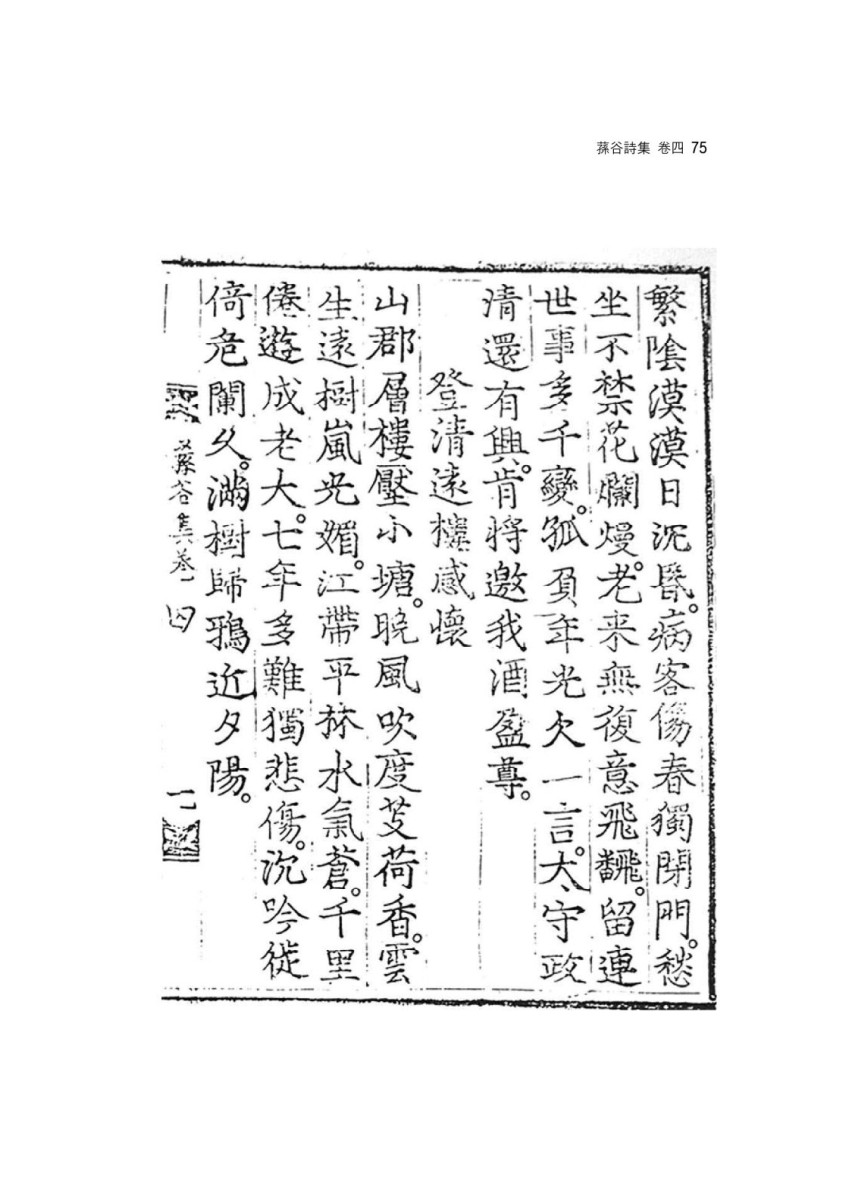 蓀谷詩集 卷四 75
繁陰漠漠日沉昏。病客傷春獨閉門。愁
坐不禁花爛熳。老来無復意飛飜。留連
世事多千變。孤負年光欠一言。太守政
清還有興。肯將邀我酒盈尊。
登清遠樓感懷
山郡層樓壓小塘。晩風吹度芰荷香。雲
生遠樹嵐光媚。江帶平林水氣蒼。千里
倦遊成老大。七年多難獨悲傷。沉吟徙
倚危闌久。滿樹歸鴉近夕陽。
蓀谷集卷四 一